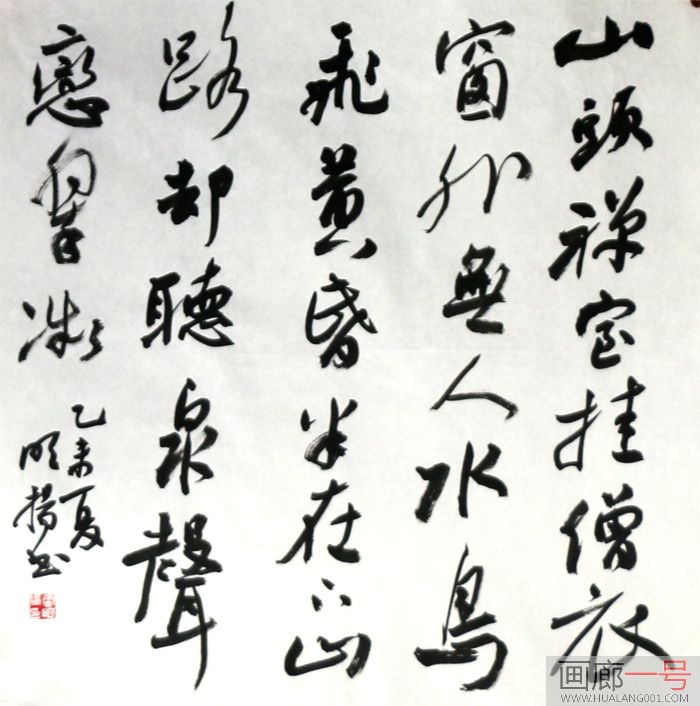 山頭禅室挂僧衣
窗外無人水鳥
飛黄昏半在下山
路却聽泉聲
戀翠微
乙未夏
明揚書
画廊一号
WWW.HUALANG001.COM